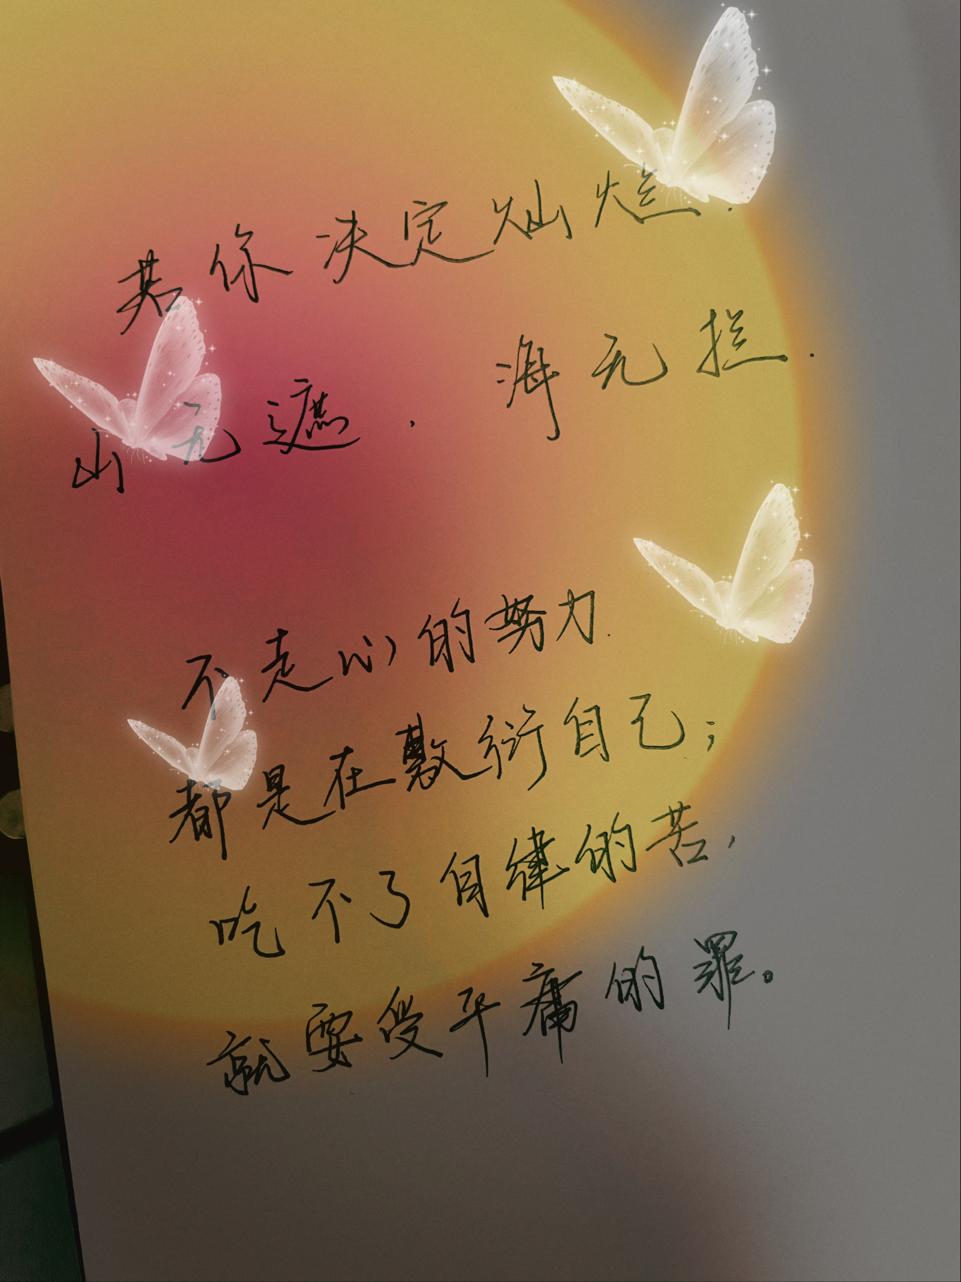 若你决定灿烂.
山无遮.海无拦.
不走心的努力.
都是在敷衍自己;
吃不了自律的苦,
就要受平庸的罪。